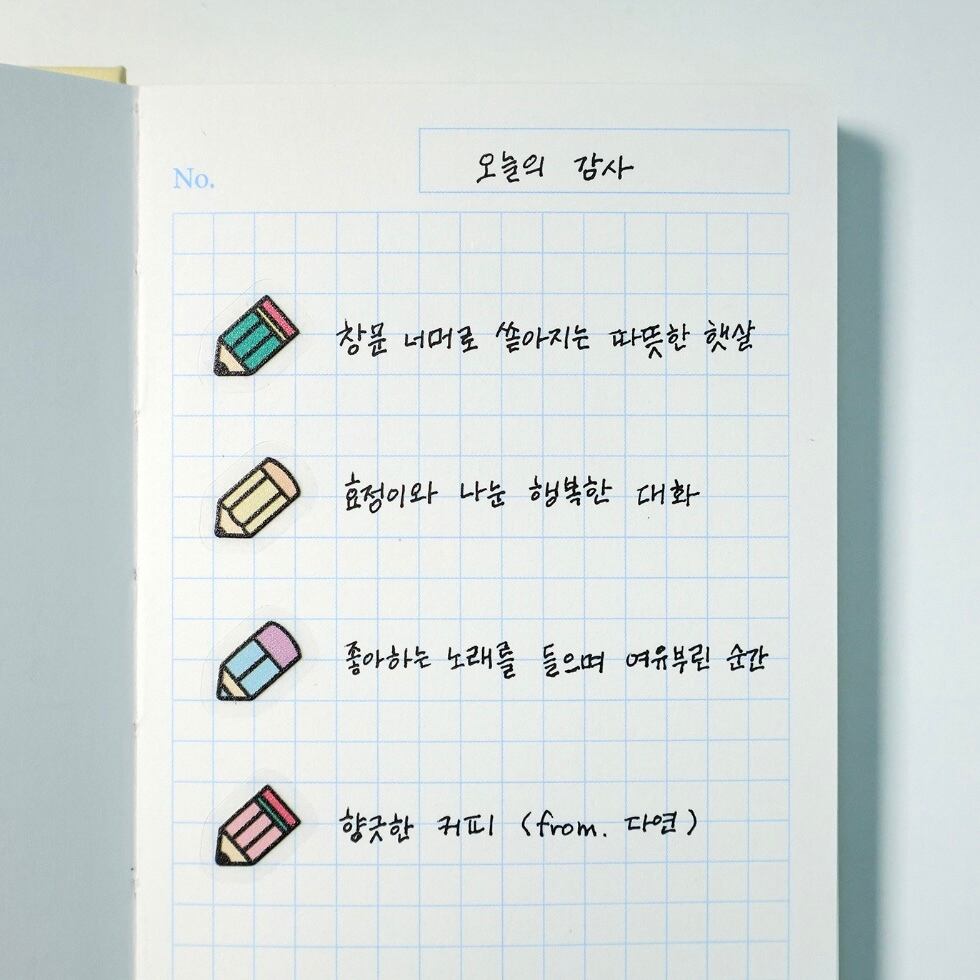 오늘의 감사
No.
창문 너머로 쏟아지는 따뜻한 햇살
효정이와 나눈 행복한 대화
좋아하는 노래를 들으며 여유부린 순간
향긋한 커피 (from. 다연)